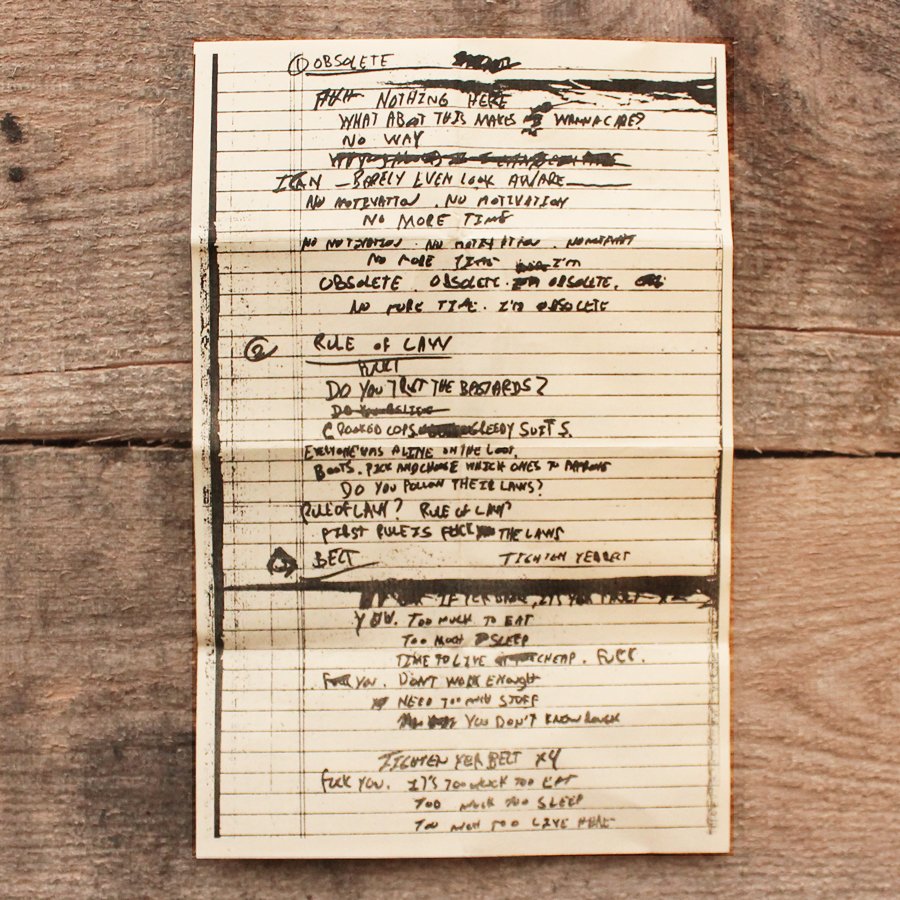 ① OBSOLETE
NOTHING HERE
WHAT ABOUT THIS MAKES WANNA CARE?
NO WAY
I CAN BARELY EVEN LOOK AWARE
NO MOTIVATION. NO MOTIVATION
NO MORE TIME
NO MOTIVATION. NO MOTIVATION.
NO MORE TIME I'M
OBSOLETE. OBSOLETE. I'M OBSOLETE.
NO MORE TIME. I'M OBSOLETE
② RULE OF LAW
DO YOU TRUST THE BASTARDS?
CROOKED COPS. GREEDY SUITS.
EVERYONE HAS A LINE ON THE LOOT.
BOOTS. PICK AND CHOOSE WHICH ONES TO APPROVE
DO YOU FOLLOW THEIR LAWS?
RULE OF LAW? RULE OF LAW
FIRST RULE IS FUCK THE LAWS
③ BELT TIGHTEN YER BELT
YOU. TOO MUCH TO EAT
TOO MUCH SLEEP
TIME TO LIVE CHEAP. FUCK.
YOU. DON'T WORK ENOUGH
NEED TOO MUCH STUFF
YOU DON'T KNOW ROUGH
TIGHTEN YER BELT X4
FUCK YOU. IT'S TOO MUCH TOO EAT
TOO MUCH TOO SLEEP
TOO MUCH TOO LIVE HERE